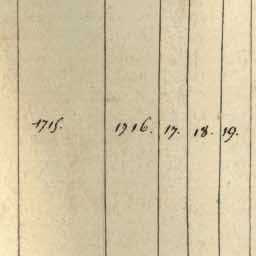 1715. 1716. 17. 18. 19.